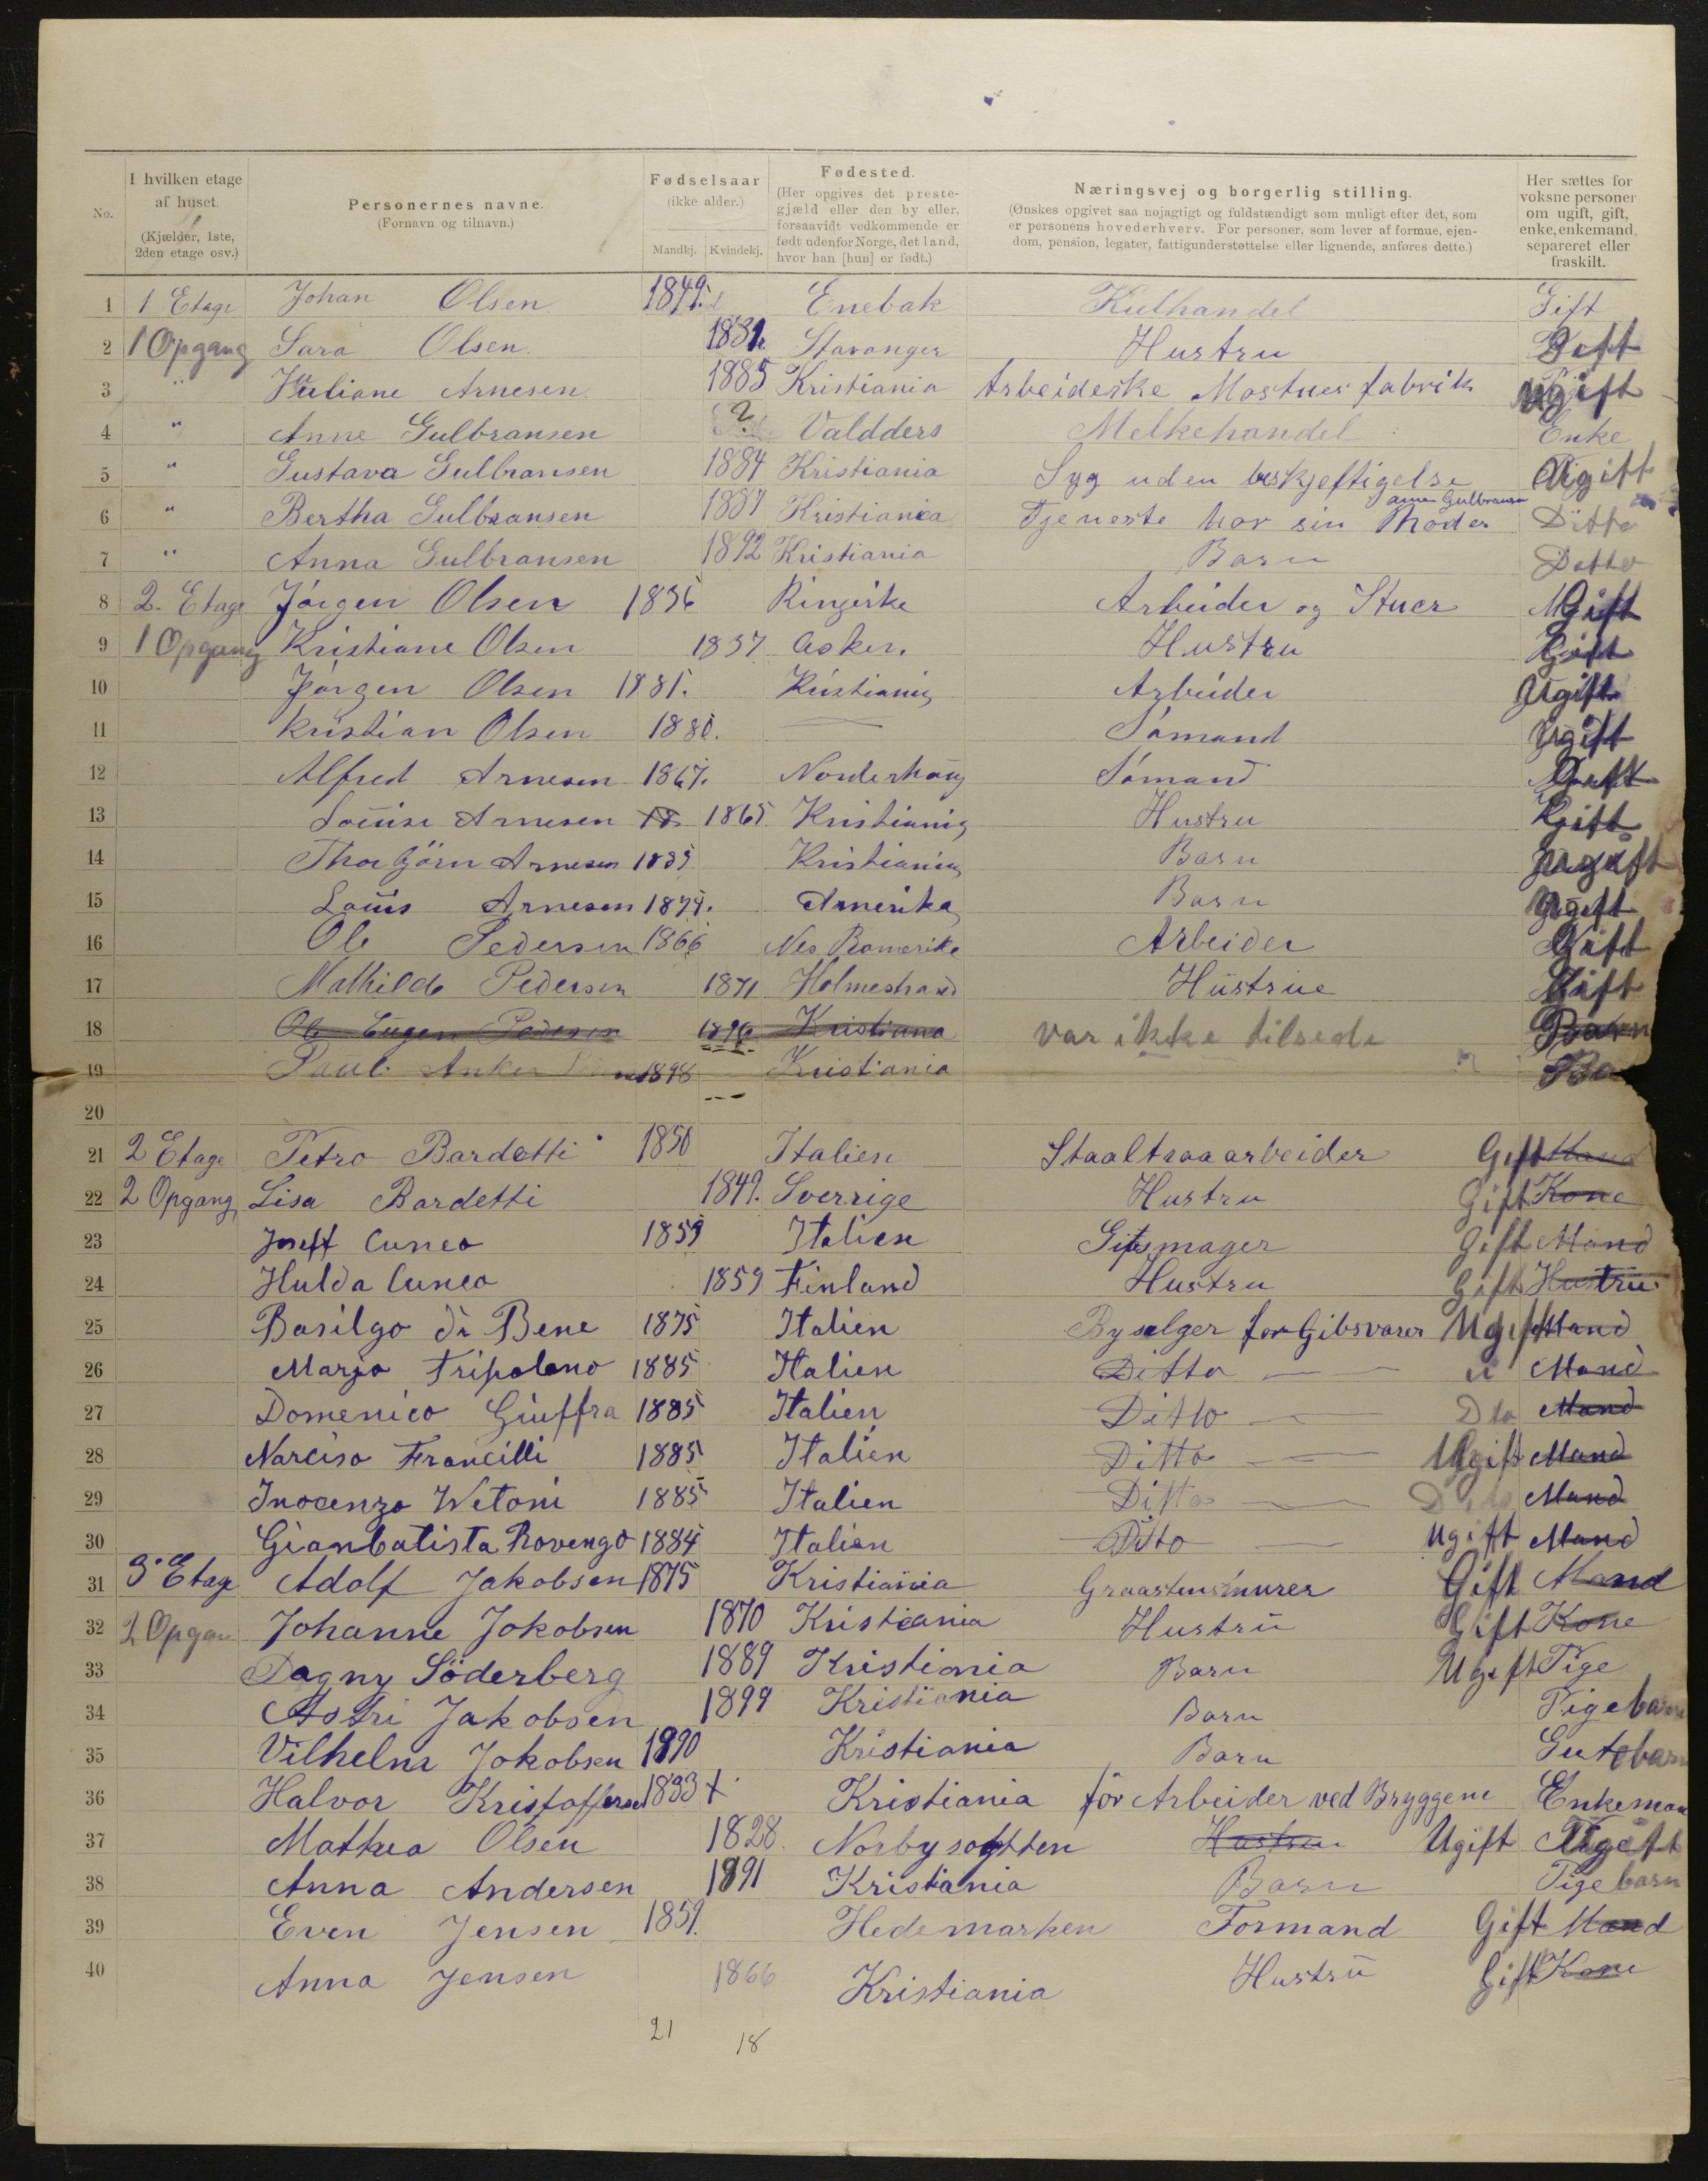 No. I hvilken etage af huset. (Kjælder, 1ste, 2den etage osv.) Personernes navne. (Fornavn og tilnavn.) Fødselsaar (ikke alder.) Mandkj. Kvindekj. Fødested. (Her opgives det prestegjæld eller den by eller, forsaavidt vedkommende er født udenfor Norge, det land, hvor han [hun] er født.) Næringsvej og borgerlig stilling. (Ønskes opgivet saa nøjagtigt og fuldstændigt som muligt efter det, som er personens hovederhverv. For personer, som lever af formue, ejendom, pension, legater, fattigunderstøttelse eller lignende, anføres dette.) Her sættes for voksne personer om ugift, gift, enke, enkemand, separeret eller fraskilt.
1 1 Etage Johan Olsen 1849. Enebak Kulhandel Gift
2 1 Opgang Sara Olsen Stavanger Hustru Gift
3 " Juliane Arnesen 1885 Kristiania Arbeiderske fabrik Ugift
4 " Anne Gulbransen ? Valdders Melkehandel Enke
5 " Gustava Gulbransen 1884 Kristiania Syg uden beskjeftigelse Ugift
6 " Bertha Gulbransen 1887 Kristiania Tjeneste hor sin Moder Anne Gulbransen Ditto
7 " Anna Gulbransen 1892 Kristiania Barn Ditto
8 2. Etage Jørgen Olsen 1836 Ringerike Arbeider og Stuer Gift
9 1 Opgang Kristiane Olsen 1837 Asker. Hustru Gift
10 Jørgen Olsen 1881. Kristiania Arbeider Ugift
11 Kristian Olsen 1880. — Sømand Ugift
12 Alfred Arnesen 1867. Norderhoug Sømand Gift
13 Louise Arnesen 1865 Kristiania Hustru Gift
14 Thorbjørn Arnesen Kristiania Barn Ugift
15 Louis Arnesen Amerika Barn Ugift
16 Ole Pedersen 1866 Nes Romerike Arbeider Gift
17 Mathilde Pedersen 1871 Holmestrand Hustrue Gift
18 Ole Eugen Pedersen 1896 Kristiana var ikke tilsede Barn
19 Paul Anker 1898 Kristiania Ba
20
21 2 Etage Petro Bardetti 1850 Italien Staaltraaarbeider Gift Mand
22 2 Opgang, Lisa Bardetti 1849. Sverrige Hustru Gift Kone
23 Joseff Cuneo 1859 Italien Gipsmager Gift Mand
24 Hulda Cuneo 1859 Finland Hustru Gift Hustru
25 Basilgo di Bene 1875 Italien Byselger for Gibsvarer Ugift Mand
26 Marjo Tripoleno 1885 Italien Ditto — — " Mand
27 Domenico Giuffra 1885 Italien Ditto — Dto Mand
28 Narciso Francilli 1885 Italien Ditto — Ugift Mand
29 Inocenzo Wetoni 1885 Italien Ditto — Dito Mand
30 Gianbatista Rovengo 1884 Italien Ditto — Ugift Mand
31 3 Etage Adolf Jakobsen 1875 Kristiania Graastensmurer Gift Mand
32 2 Opgan Johanne Jokobsen 1870 Kristiania Hustru Gift Kone
33 Dagny Søderberg 1889 Kristiania Barn Ugift Pige
34 Astri Jakobsen 1899 Kristiania Barn Pigebarn
35 Vilhelm Jokobsen 1890 Kristiania Barn Gutebarn
36 Halvor Kristoffersen Kristiania før Arbeider ved Bryggene Enkeman
37 Mathea Olsen 1828. Hustru Ugift Ugift
38 Anna Andersen 1891 Kristiania Barn Pigebarn
39 Even Jensen 1859. Hedemarken Formand Gift Mand
40 Anna Jensen 1866 Kristiania Hustru Gift Kone
21 18